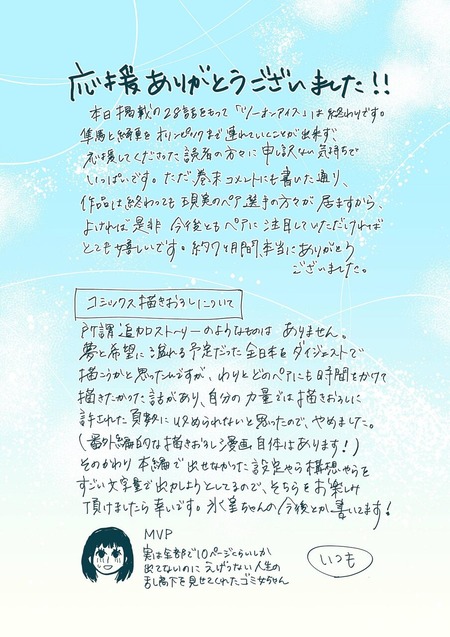 応援ありがとうございました!!
本日掲載の28話をもって「ツーオンアイス」は終わりです。
隼馬と綺更をオリンピックまで連れていくことが出来ず
応援してくださった読者の方々に申し訳ない気持ちで
いっぱいです。ただ、巻末コメントにも書いた通り、
作品は終わっても現実のペア選手の方々が居ますから、
よければ是非 今後ともペアに注目していただければ
とても嬉しいです。約7ヶ月間、本当にありがとう
ございました。
コミックス描きおろしについて
所謂追加ストーリーのようなものは ありません。
夢と希望に溢れる予定だった全日本をダイジェストで
描こうかと思ったんですが、わりとどのペアにも時間をかけて
描きたかった話があり、自分の力量では描きおろしに
許された頁数に収められないと思ったので、やめました。
(番外編的な描きおろし漫画自体はあります!)
そのかわり 本編で出せなかった設定やら構想やらを
すごい文字量で出力しようとしてるので、そちらをお楽しみ
頂けましたら幸いです。氷室ちゃんの今後とか書いてます!
MVP
実は全部で10ページくらいしか
出てないのに えげつない人生の
乱高下を見せてくれたゴミ女ちゃん
いつも